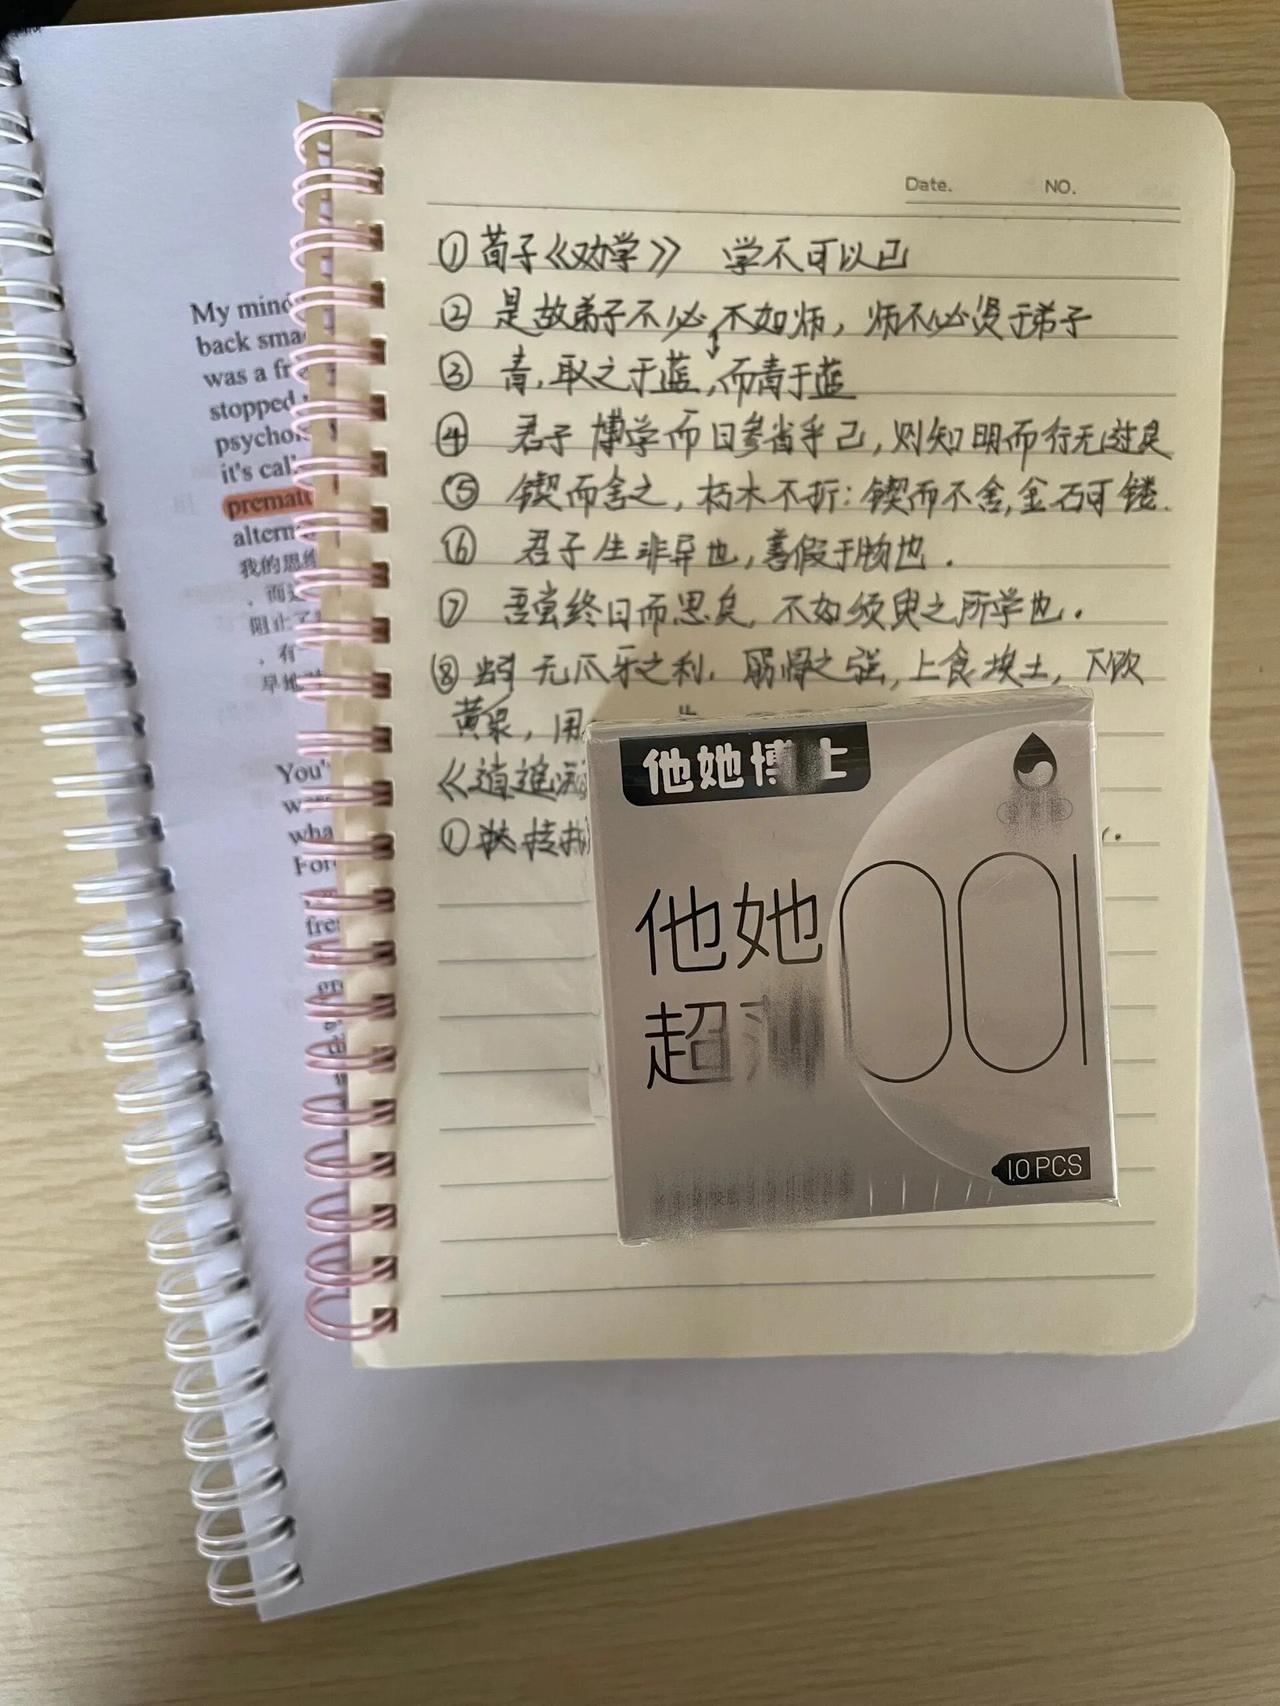 Date. NO.
①荀子《劝学》 学不可以已
②是故弟子不必不如师，师不必贤于弟子
③青，取之于蓝，而青于蓝
④君子博学而日参省乎己，则知明而行无过矣
⑤锲而舍之，朽木不折；锲而不舍，金石可镂.
⑥君子生非异也，善假于物也.
⑦吾尝终日而思矣，不如须臾之所学也.
⑧ 无爪牙之利，筋骨之强，上食埃土，下饮
黄泉，用
《逍遥游
①抟扶
My mind
back sma
was a fr
stopped
psycho
it's cal
premat
altern
我的思维
，而这
阻止了
，有一
You'
wha
For
fre
他她博士
他她
超薄
001
10PCS